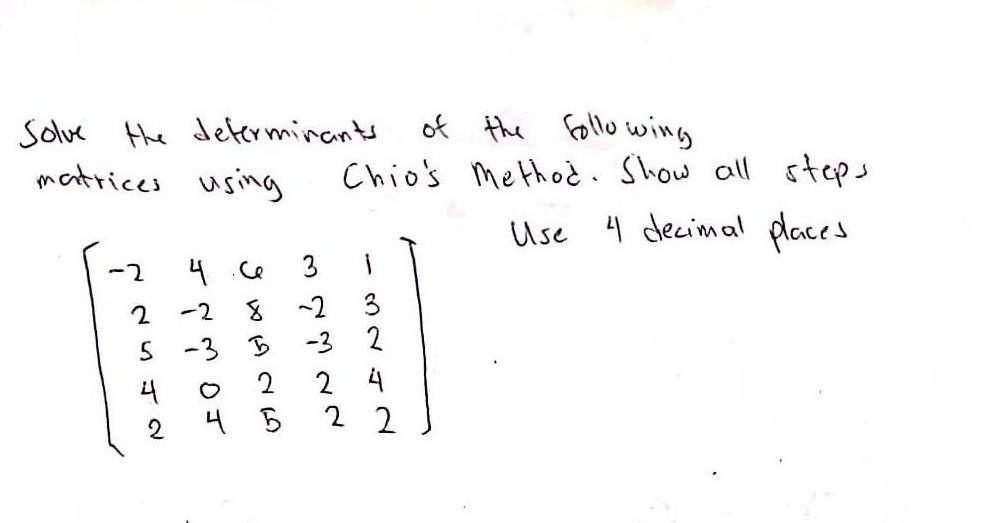 Solve the determinants of the following
matrices using Chio's Method. Show all steps
Use 4 decimal places
-2 4 6 3 1
2 -2 8 -2 3
5 -3 5 -3 2
4 0 2 2 4
2 4 5 2 2